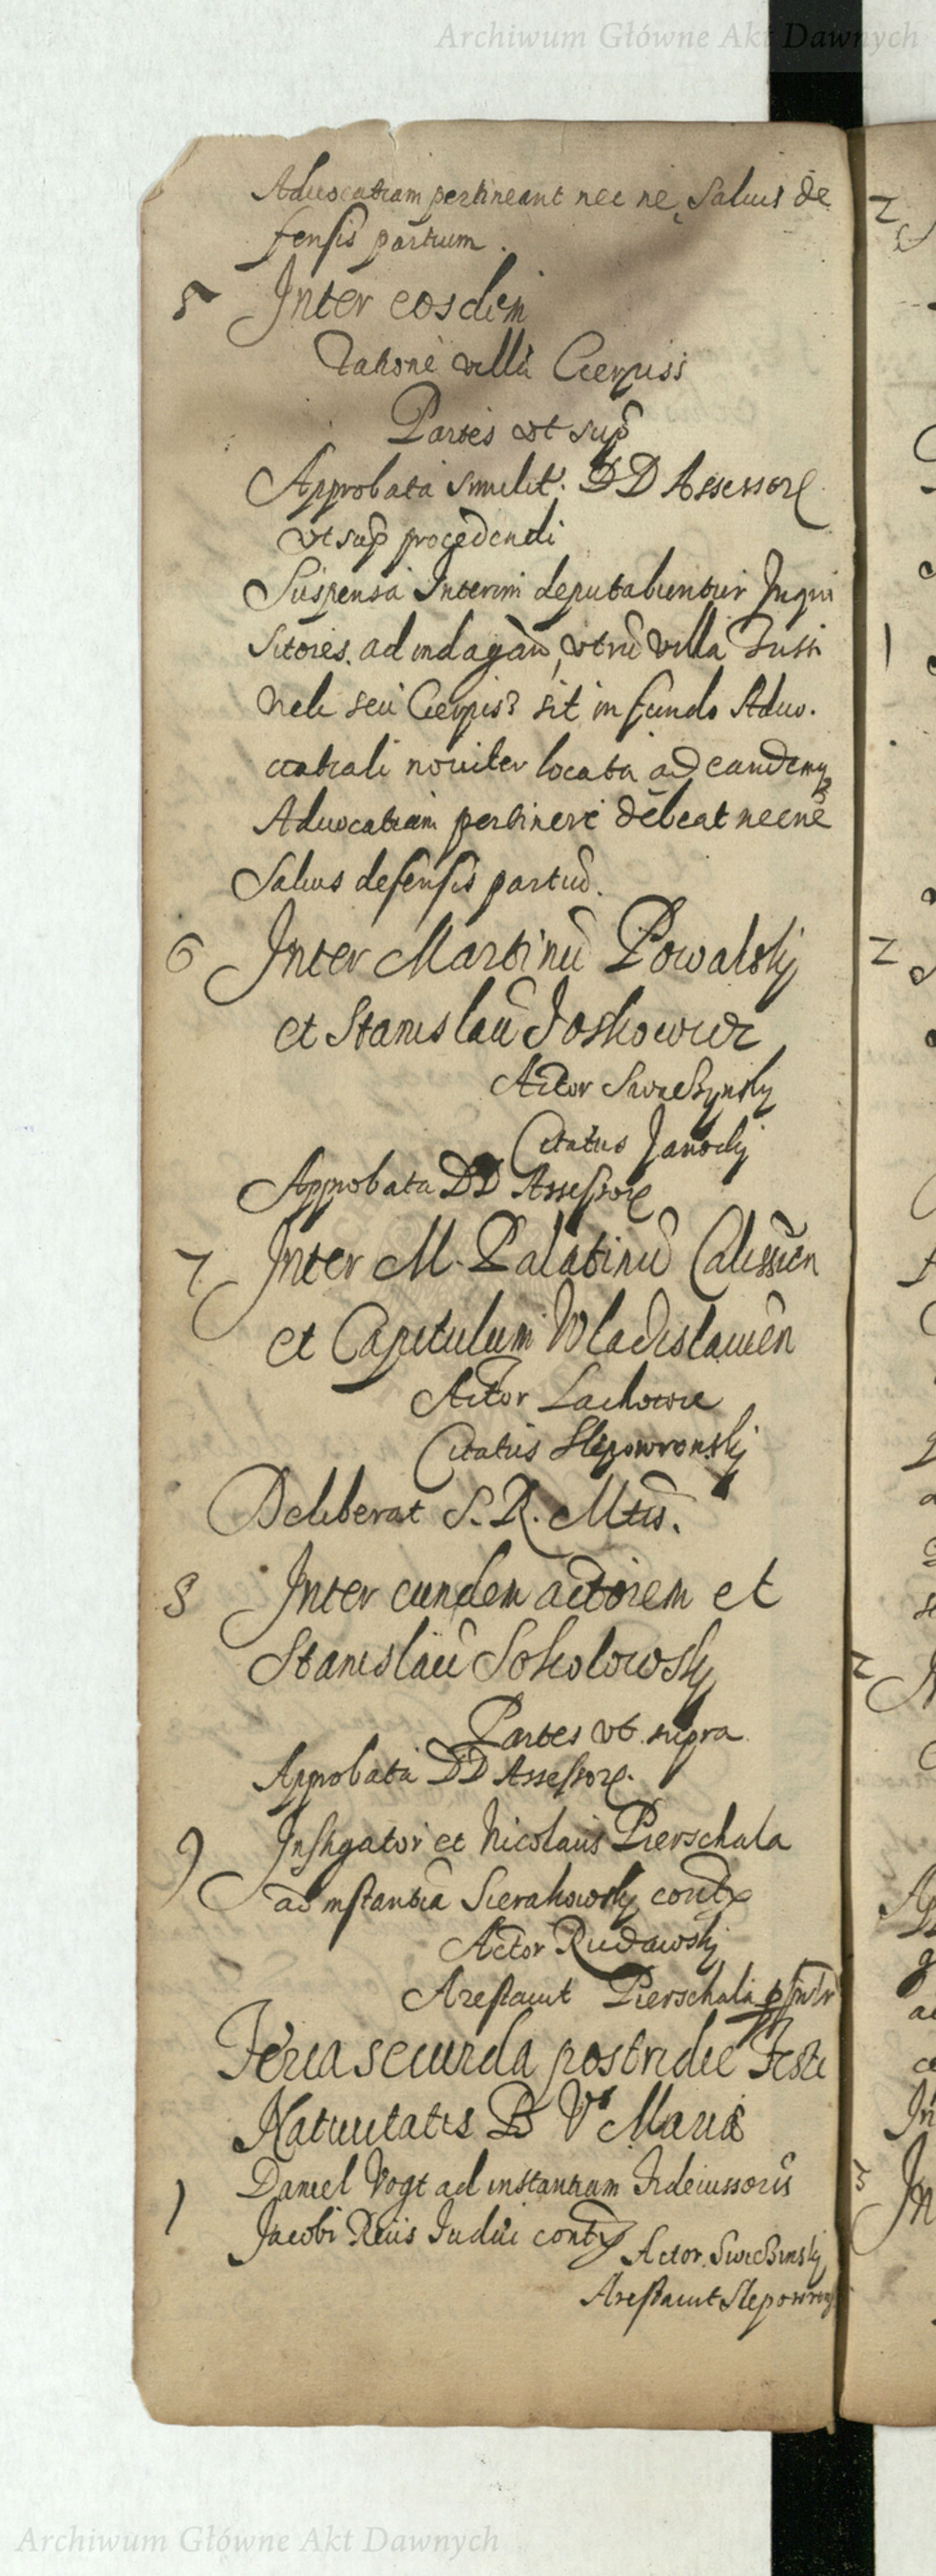 Archiwum Główne Akt Dawnych
Aduocatiam pertineant nec ne, Saluis de
fensis partium.
5 Inter eosdem
Ratione villa
Partes vt sup
Approbata similit. DD Assessor
vt sup procedendi
Suspensa Interim deputabuntur Inqui
sitores. ad indagan, vtru villa
seu sit in fundo Aduo.
catiali nouiter locata ad eandemq
Aduocatiam pertinere debeat necne
Saluis defensis partiu.
6 Inter Martinu Powalskj
et Stanislau Joskowicz
Actor
Citatus
Approbata DD Assessor
7 Inter M. Palatinu Calissien
et Capitulum Wladislauien
Actor Lachowic
Citatus Slepowronskj
Deliberat S. R. Mtas.
8 Inter eundem actorem et
Stanislau Sokolowskj
Partes vt supra
Approbata DD Assessor.
9 Instigator et Nicolaus Pierschala
ad instantia Sierakowskj contr
Actor Rudawskj
Arestauit Pierschala
Feria secunda postridie Festi
Natiuitatis B V Maria
1 Daniel Vogt ad instantiam fideiussoris
Jacobi Judai contr
Actor.
Arestauit
Archiwum Główne Akt Dawnych